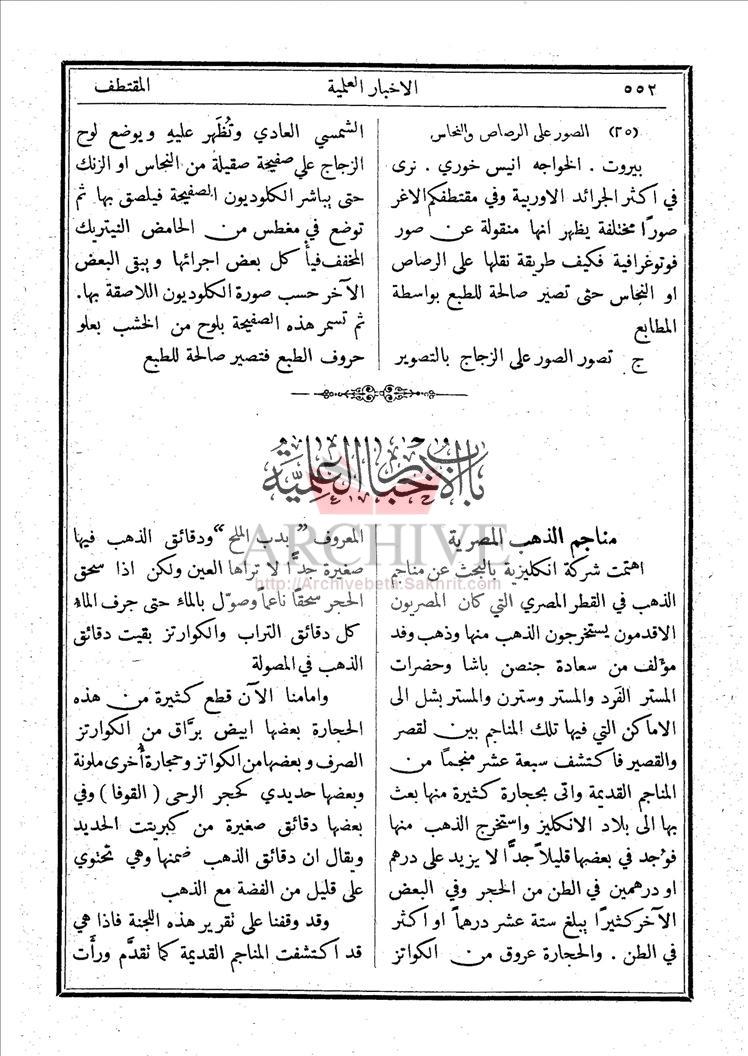 ٥٥٢
الاخبار العلمية
المقتطف
(٢٥) الصور على الرصاص والنحاس
بيروت . الخواجه انيس خوري . نرى
في اكثر الجرائد الاوربية وفي مقتطفكم الاغر
صورًا مختلفة يظهر انها منقولة عن صور
فوتوغرافية فكيف طريقة نقلها على الرصاص
او النحاس حتى تصير صالحة للطبع بواسطة
المطابع
ج تصور الصور على الزجاج بالتصوير
الشمسي العادي وتُظهَر عليهِ ويوضع لوح
الزجاج على صفيحة صقيلة من النحاس او الزنك
حتى يباشر الكلوديون الصفيحة فيلصق بها ثم
توضع في مغطس من الحامض النيتريك
المخفف فيأكل بعض اجزائها ويبقى البعض
الآخر حسب صورة الكلوديون اللاصقة بها.
ثم تسمر هذه الصفيحة بلوح من الخشب بعلو
حروف الطبع فتصير صالحة للطبع
باب الاخبار العلمية
مناجم الذهب المصرية
اهتمت شركة انكليزية بالبحث عن مناجم
الذهب في القطر المصري التي كان المصريون
الاقدمون يستخرجون الذهب منها وذهب وفد
مؤلف من سعادة جنصن باشا وحضرات
المستر الفَرد والمستر وسترن والمستر بشل الى
الاماكن التي فيها تلك المناجم بين لقصر
والقصير فاكتشف سبعة عشر منجمًا من
المناجم القديمة واتى بحجارة كثيرة منها بعث
بها الى بلاد الانكليز واستخرج الذهب منها
فوُجد في بعضها قليلاً جدًّا لا يزيد على درهم
او درهمين في الطن من الحجر وفي البعض
الآخر كثيرًا يبلغ ستة عشر درهماً او اكثر
في الطن . والحجارة عروق من الكواتز
المعروف "بدب الملح" ودقائق الذهب فيها
صغيرة جدًّا لا تراها العين ولكن اذا سحق
الحجر سحقًا ناعماً وصوّل بالماء حتى جرف الماء
كل دقائق التراب والكوارتز بقيت دقائق
الذهب في المصولة
وامامنا الآن قطع كثيرة من هذه
الحجارة بعضها ابيض برَّاق من الكوارتز
الصرف وبعضها من الكواتز وحجارة أخرى ملونة
وبعضها حديدي كحجر الرحى (القوفا) وفي
بعضها دقائق صغيرة من كبريتت الحديد
ويقال ان دقائق الذهب ضمنها وهي تحتوي
على قليل من الفضة مع الذهب
وقد وقفنا على تقرير هذه اللجنة فاذا هي
قد اكتشفت المناجم القديمة كما تقدَّم ورأَت
ARCHIVE
http://Archivebeta.Sakhrit.com